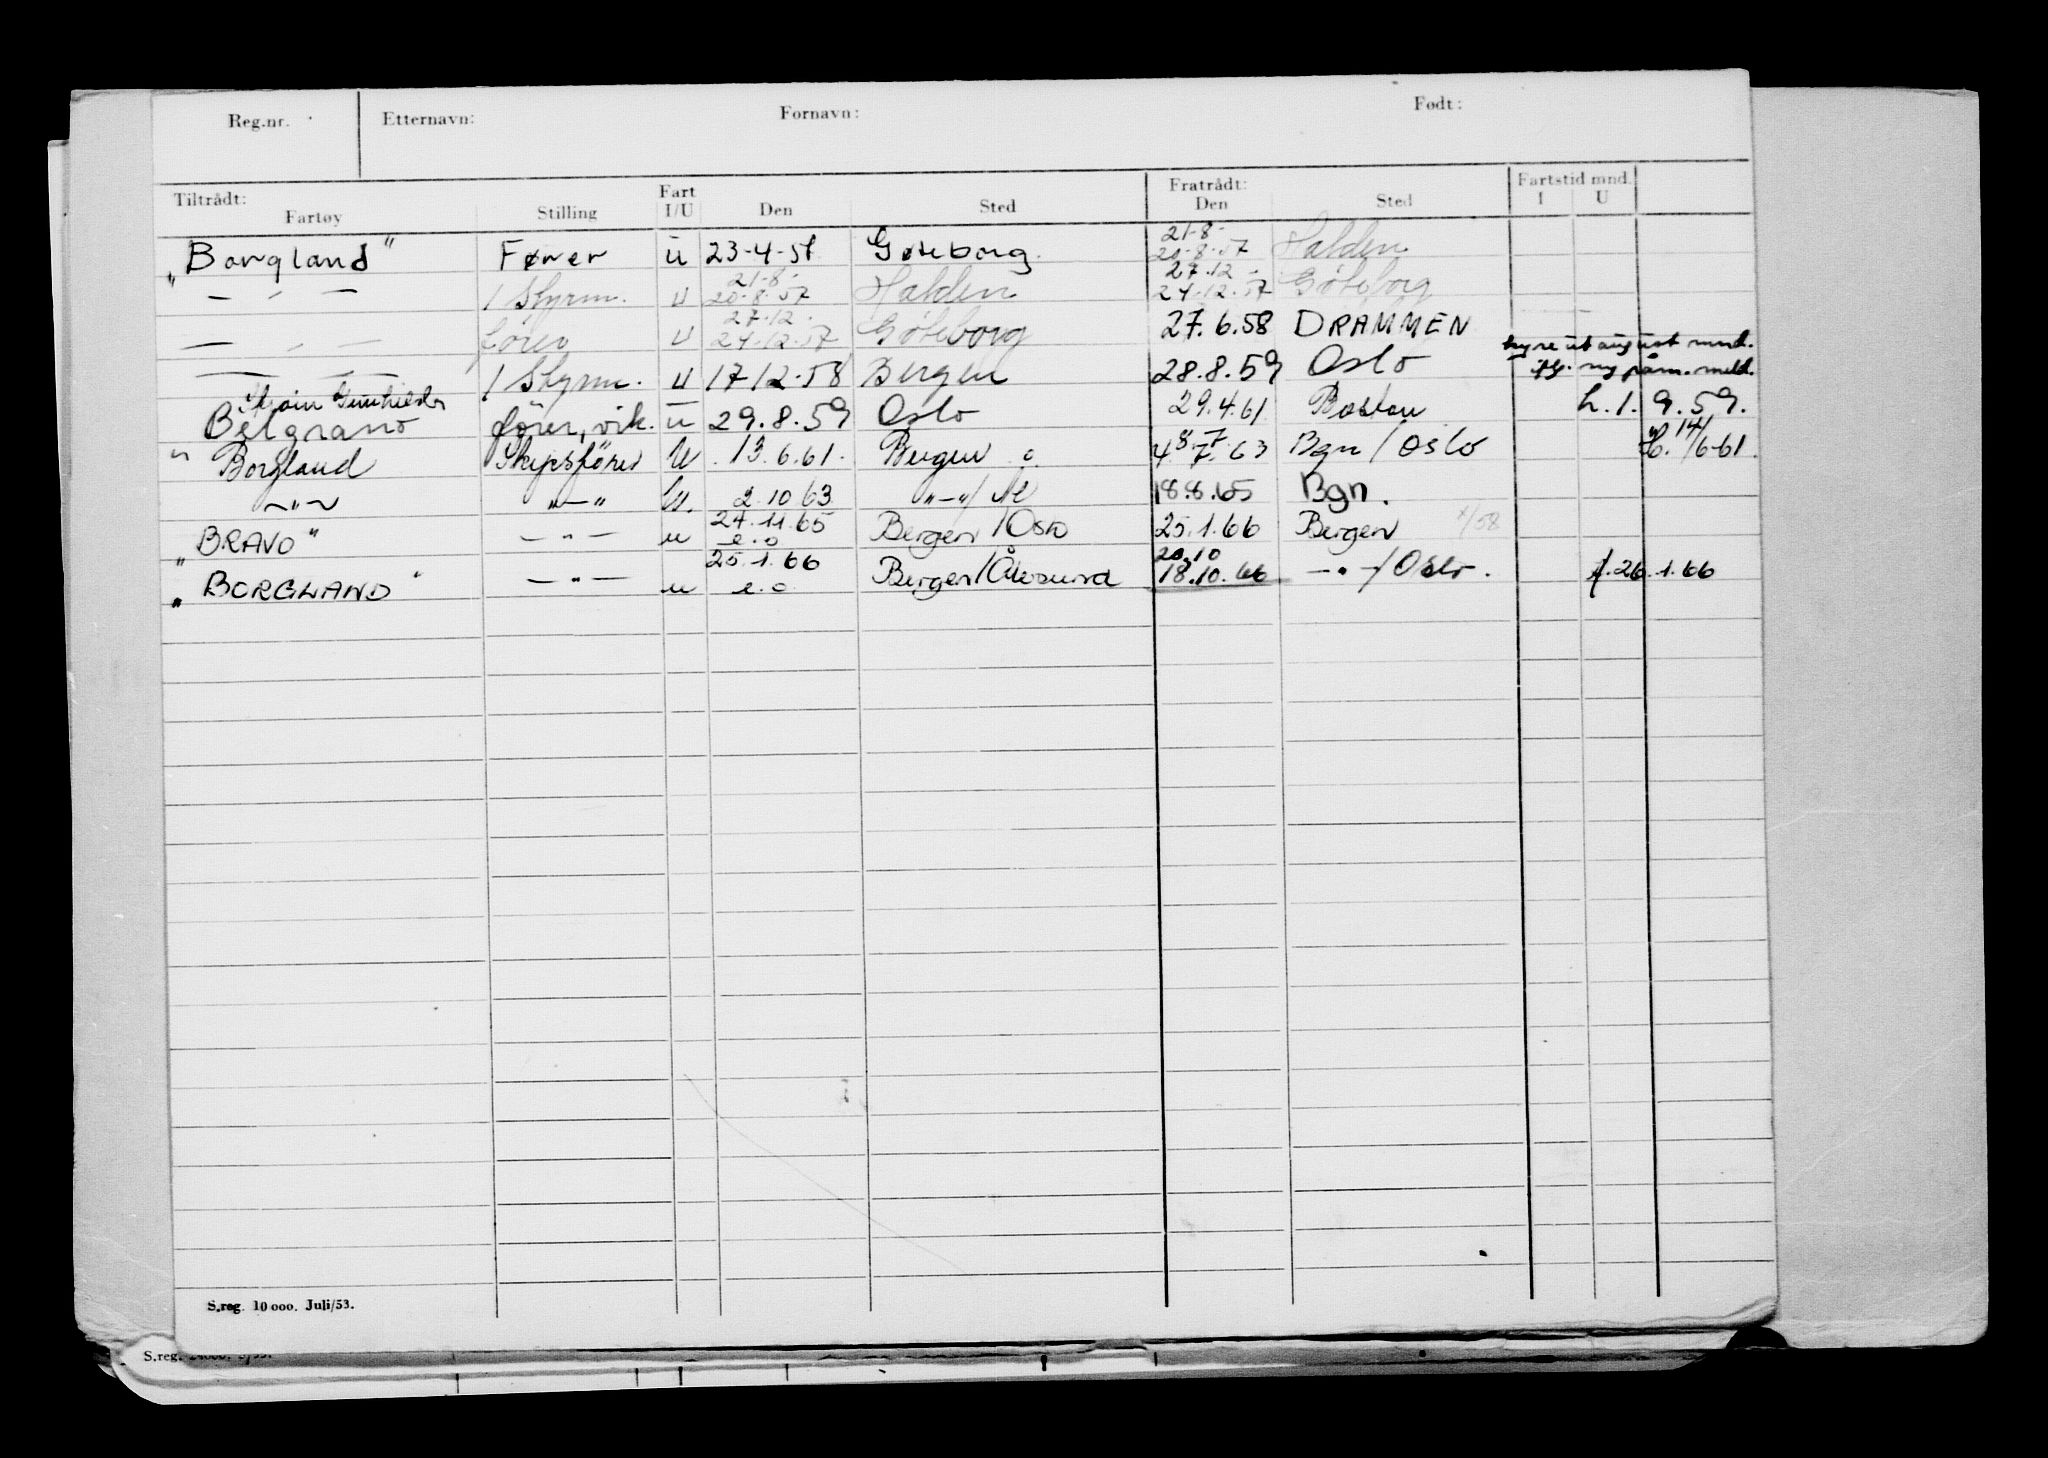 Reg.nr. Etternavn: Fornavn: Født:
Tiltrådt: Fart Fratrådt: Fartstid mnd.
Fartøy Stilling I/U Den Sted Den Sted I U
21-8-
"Borgland" Fører u 23-4-57 Gøteborg. 20-8-57 Halden
21-8- 27.12-
— " — 1 Styrm. u 20-8-57 Halden 24-12-57 Göteborg
27.12-
— " — fører u 24-12-57 Göteborg 27.6.58 DRAMMEN
hyre ut august mnd.
— — — 1 Styrm. u 17 12-58 Bergen 28.8.59 Oslo ny påm. meld.
Belgrano fører, vik. u 29.8.59 Oslo 29.4.61 Boston h. 1. 9.59.
8.7. 14/
" Borgland Skipsfører U. 13.6.61. Bergen 4.7.63 Bgn / Oslo 6-61.
—"— "—" U. 2.10 63 "—"/ 18.8.65 Bgn.
24.11.65
"BRAVO" — " — u e.o Bergen / Oslo 25.1.66 Bergen
25.1.66 20.10
"BORGLAND" — " — u e.o Bergen/Ålesund 18.10.66 —"—/Oslo. 26.1.66
S.reg. 10 000. Juli/53.
S.reg.